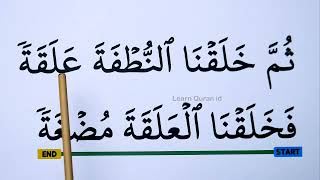 ثُمَّ خَلَقْنَا ٱلنُّطْفَةَ عَلَقَةً
Learn Quran id
فَخَلَقْنَا ٱلْعَلَقَةَ مُضْغَةً
END START